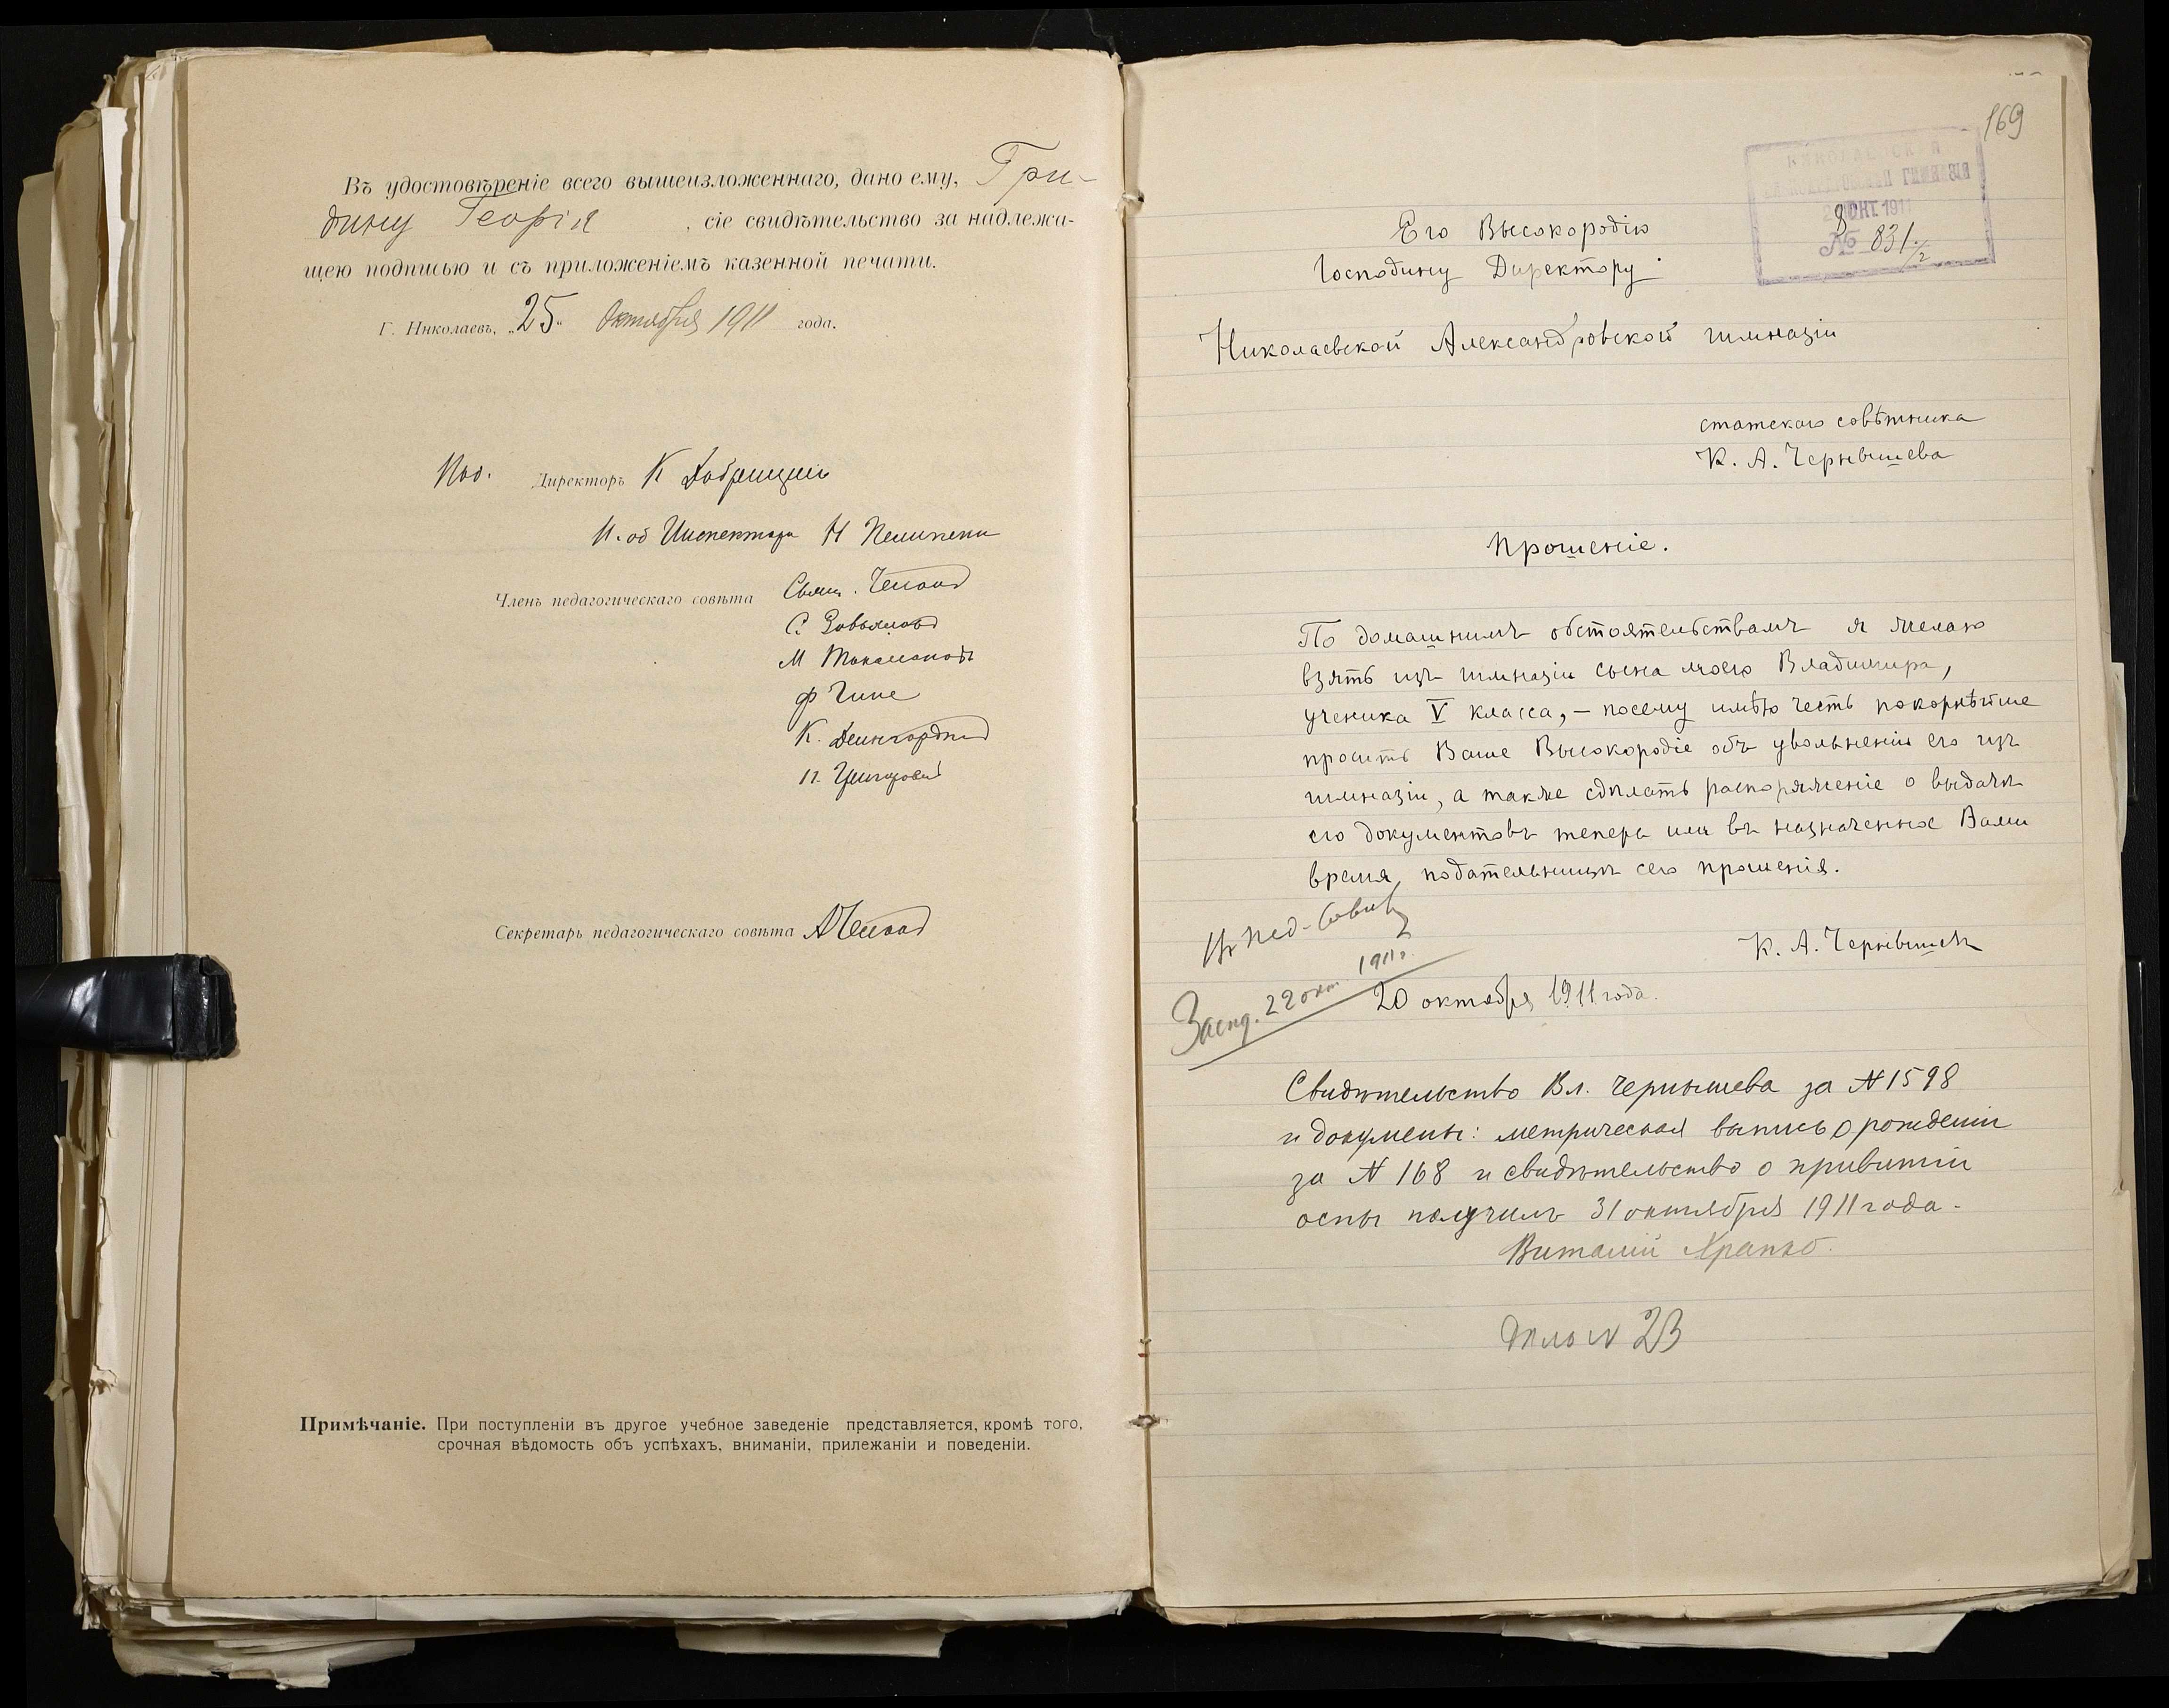 Въ удостовѣреніе всего вышеизложеннаго, дано ему, Гри-
дину Георгія, сіе свидѣтельство за надлежа-
щею подписью и съ приложеніемъ казенной печати.
Г. Николаевъ, „25“ Октября 1911 года.
Директоръ К
И. об Инспектора Н
Членъ педагогическаго совѣта Свящ.
С.
М
Ф
К.
П.
Секретарь педагогическаго совѣта
Примѣчаніе. При поступленіи въ другое учебное заведеніе представляется, кромѣ того,
срочная вѣдомость объ успѣхахъ, вниманіи, прилежаніи и поведеніи.
169
НИКОЛАЕВСКАЯ
АЛЕКСАНДРОВСКАЯ ГИМНАЗІЯ
ОКТ 1911
№ 831/2
Его Высокородію
Господину Директору
Николаевской Александровской гимназіи
статскаго совѣтника
К. А. Чернышева
Прошеніе.
По домашнимъ обстоятельствамъ я желаю
взять изъ гимназіи сына моего Владимира,
ученика V класса, – посему имѣю честь покорнѣйше
просить Ваше Высокородіе объ увольненіи его изъ
гимназіи, а также сдѣлать распоряженіе о выдачѣ
его документовъ теперь или въ назначенное Вами
время, подательницѣ сего прошенія.
К. А. Чернышевъ
Въ пед. Совѣтъ
Засѣд. 22 окт. 1911 г.
20 октября 1911 года.
Свидѣтельство Вл. Чернышева за № 1598
и докумены: метрическая выпись о рожденіи
за № 168 и свидѣтельство о привитіи
оспы получилъ 31 октября 1911 года.
Виталій Храпко.
Дѣло № 23